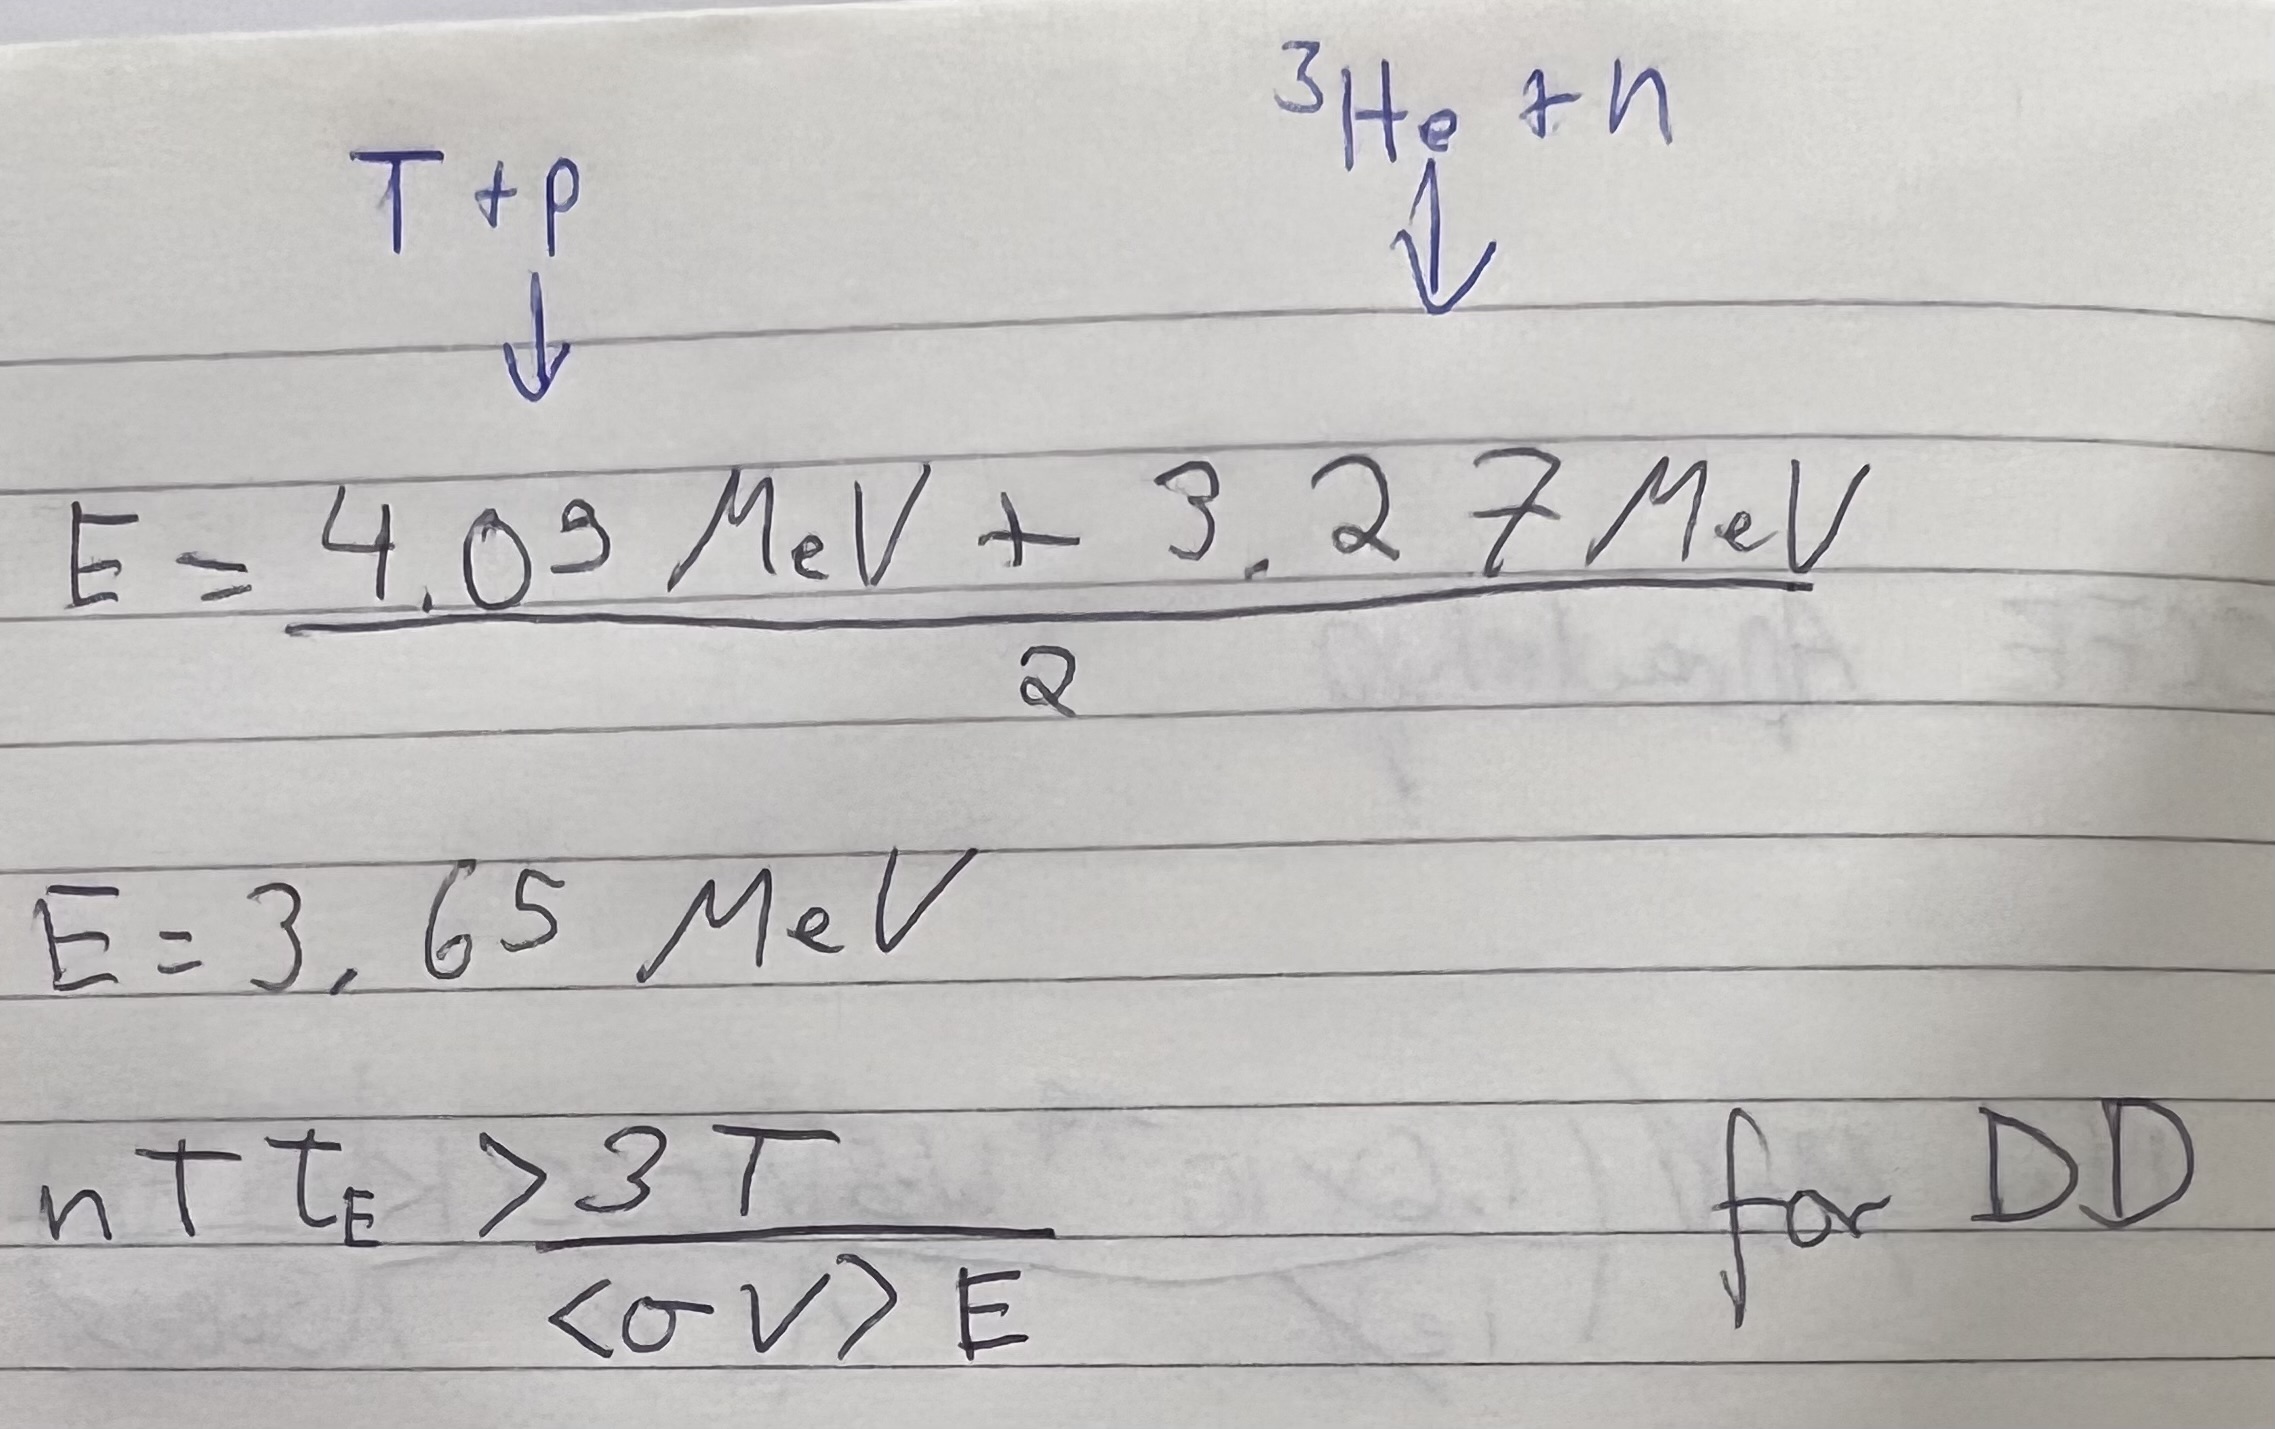 T + p
³He + n
E = 4.09 MeV + 3.27 MeV
2
E = 3.65 MeV
n T tE > 3 T for DD
<σ V> E